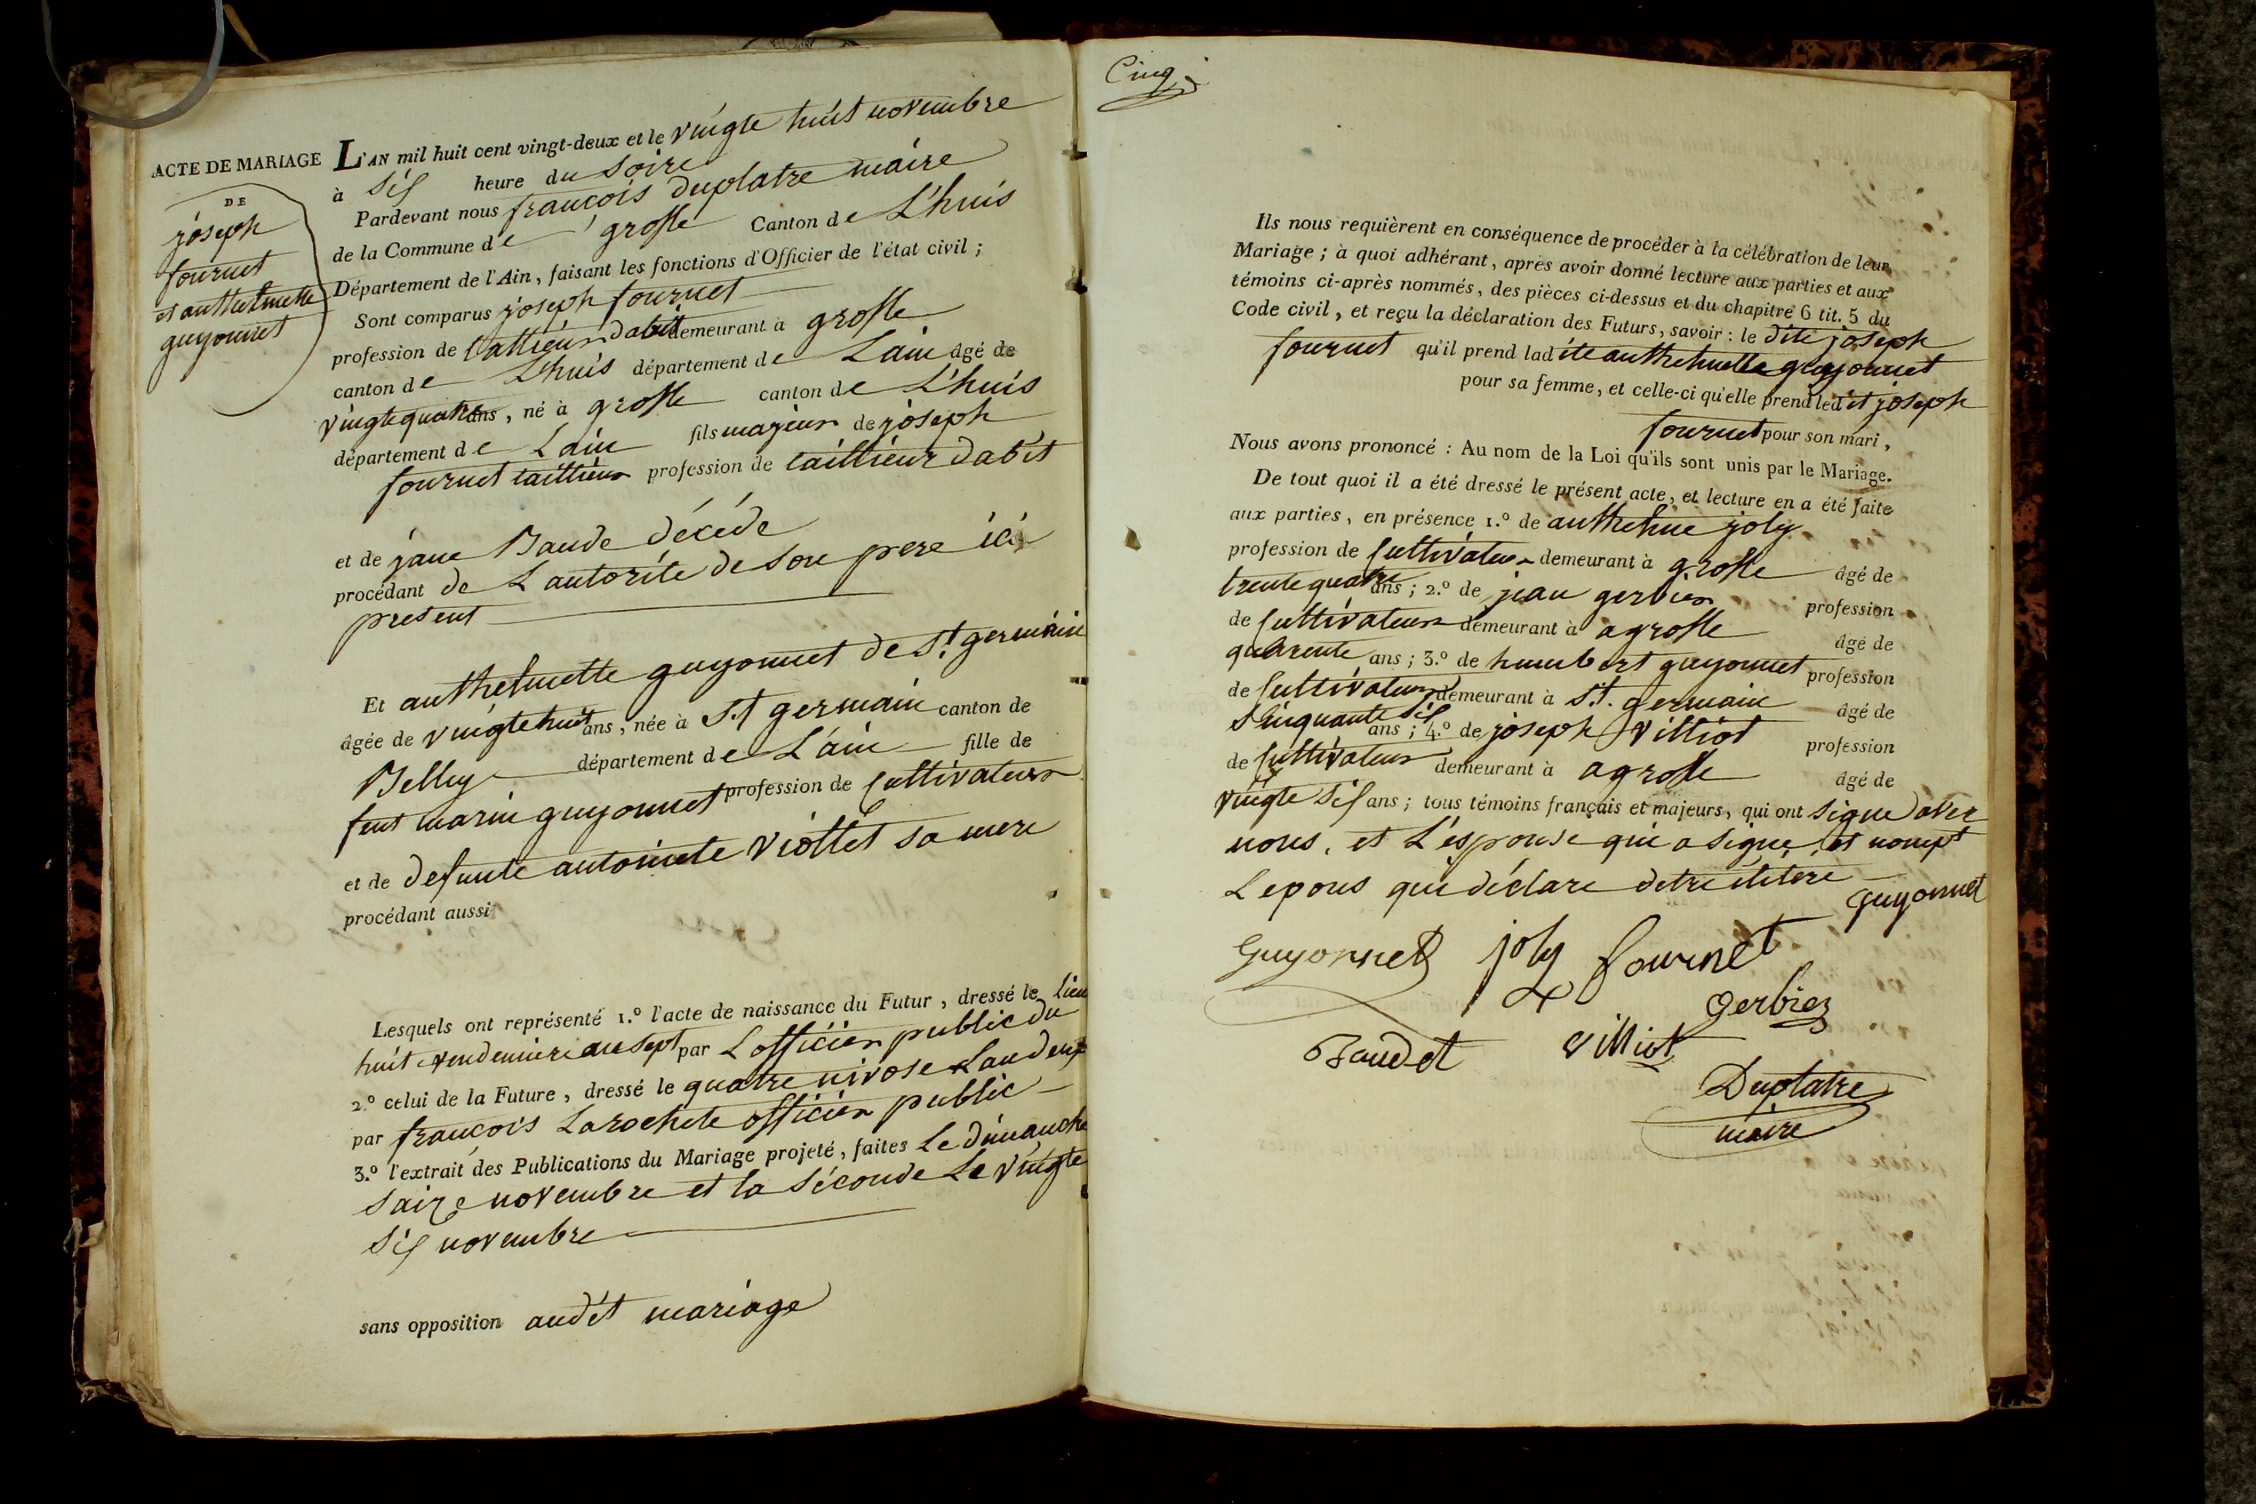 ACTE DE MARIAGE
DE
joseph
fournet
et anthelmette
guyonnet
L'AN mil huit cent vingt-deux et le vingte huit novembre
à sis heure du soire
Pardevant nous francois duplatre maire
de la Commune de grosle Canton de L'huis
Département de l'Ain, faisant les fonctions d'Officier de l'état civil ;
Sont comparus joseph fournet
profession de tallieur dabit demeurant à grosle
canton de L'huis département de Lain âgé de
vingte quatre ans, né à grosle canton de L'huis
département de Lain fils majeur de joseph
fournet taillieur profession de taillieur dabit
et de jane Baude décéde
procédant de L'autorite de son pere ici
present
Et anthelmette guyonnet de St. germain
âgée de vingte huit ans, née à St germain canton de
Belley département de L'ain fille de
feut marin guyonnet profession de cultivateur
et de defunte antoinete viollet sa mere
procédant aussi
Lesquels ont représenté 1.º l'acte de naissance du Futur, dressé le lieu
huit vendemiere an sept par L'officier public du
2.º celui de la Future, dressé le quatre nivose Lan deux
par francois Larochete officier public
3.º l'extrait des Publications du Mariage projeté, faites Le dimanche
saize novembre et la séconde Le vingte
sis novembre
sans opposition audit mariage
Cinq
Ils nous requièrent en conséquence de procéder à la célébration de leur
Mariage ; à quoi adhérant, après avoir donné lecture aux parties et aux
témoins ci-après nommés, des pièces ci-dessus et du chapitre 6 tit. 5 du
Code civil, et reçu la déclaration des Futurs, savoir : le dite joseph
fournet qu'il prend ladite anthelmette guyonnet
pour sa femme, et celle-ci qu'elle prend ledit joseph
fournet pour son mari,
Nous avons prononcé : Au nom de la Loi qu'ils sont unis par le Mariage.
De tout quoi il a été dressé le présent acte, et lecture en a été faite
aux parties, en présence 1.º de anthelme joly
profession de cultivateur demeurant à grosle âgé de
trente quatre ans ; 2.º de jean gerbier profession
de cultivateur demeurant à agrosle âgé de
quarente ans ; 3.º de humbert guyonnet profession
de cultivateur demeurant à St. germain âgé de
sinquante sis ans ; 4.º de joseph villiot profession
de cultivateur demeurant à agrosle âgé de
vingte sis ans ; tous témoins français et majeurs, qui ont signe avec
nous, et L'espouse qui a signe, et nompt
L'epous qui déclare detre iletere
guyonnet
Guyonnet joly fournet
Gerbier
Baudet villiot
Duplatre
maire